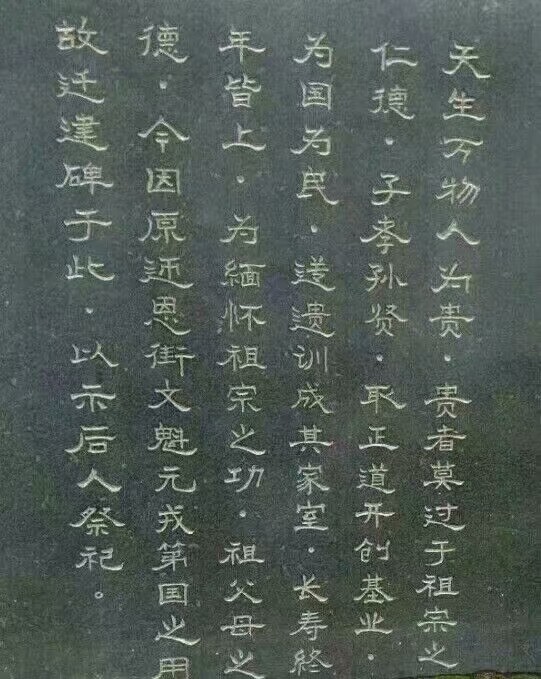 天生万物人为贵·贵者莫过于祖宗之
仁德·子孝孙贤·取正道开创基业·
为国为民·送遗训成其家室·长寿终
年皆上·为缅怀祖宗之功·祖父母之
德·今因原迊恩街文魁元戎第国之用
故迁建碑于此·以示后人祭祀。